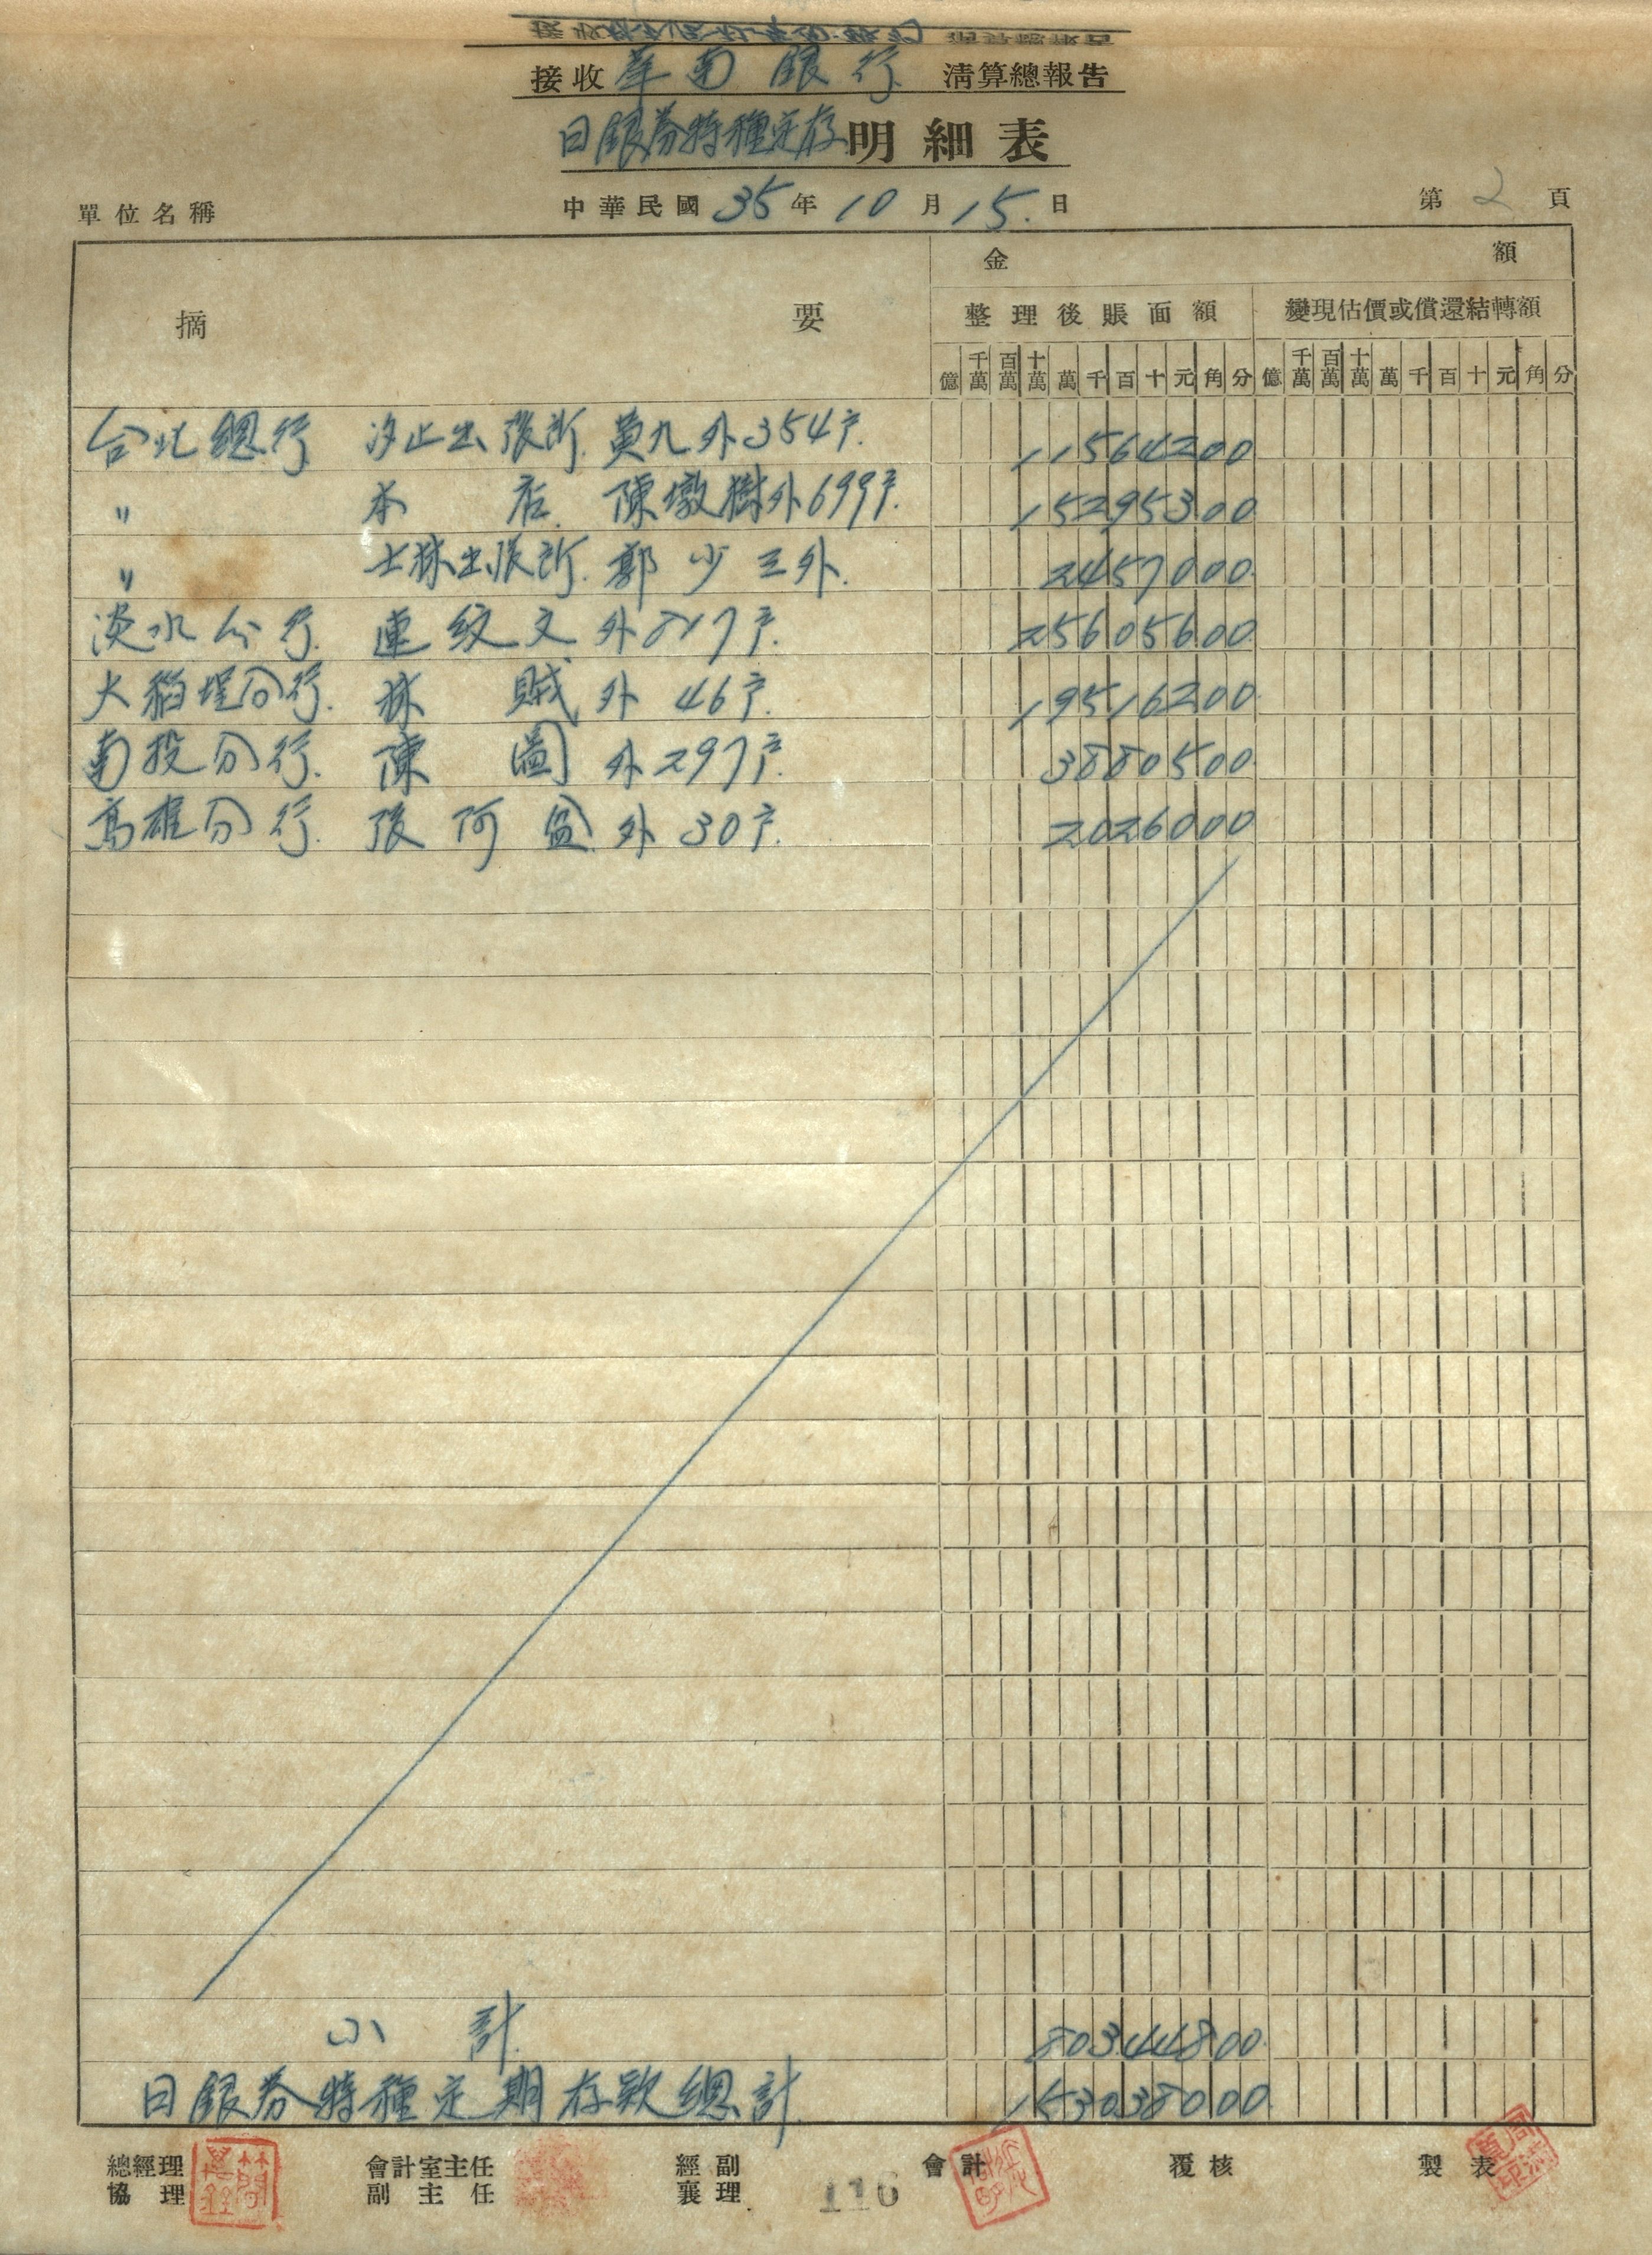 接收 華南銀行 清算總報告
日銀券特種定存明細表
單位名稱 中華民國 35 年 10 月 15 日 第 2 頁
摘要 金額
整理後賬面額 變現估價或償還結轉額
億 千萬 百萬 十萬 萬 千 百 十 元 角 分 億 千萬 百萬 十萬 萬 千 百 十 元 角 分
台北總行 汐止出張所 黃九外354戶 11564200
〃 本店 陳墩樹外699戶 15295300
〃 士林出張所 郭少三外 2457000
淡水分行 連紋文外817戶 25605600
大稻埕分行 林賊外46戶 19516200
南投分行 陳圖外297戶 3880500
高雄分行 張阿盆外30戶 2026000
小計 80344800
日銀券特種定期存款總計 153038000
總經理 會計室主任 經副 會計 覆核 製表
協理 副主任 襄理 116